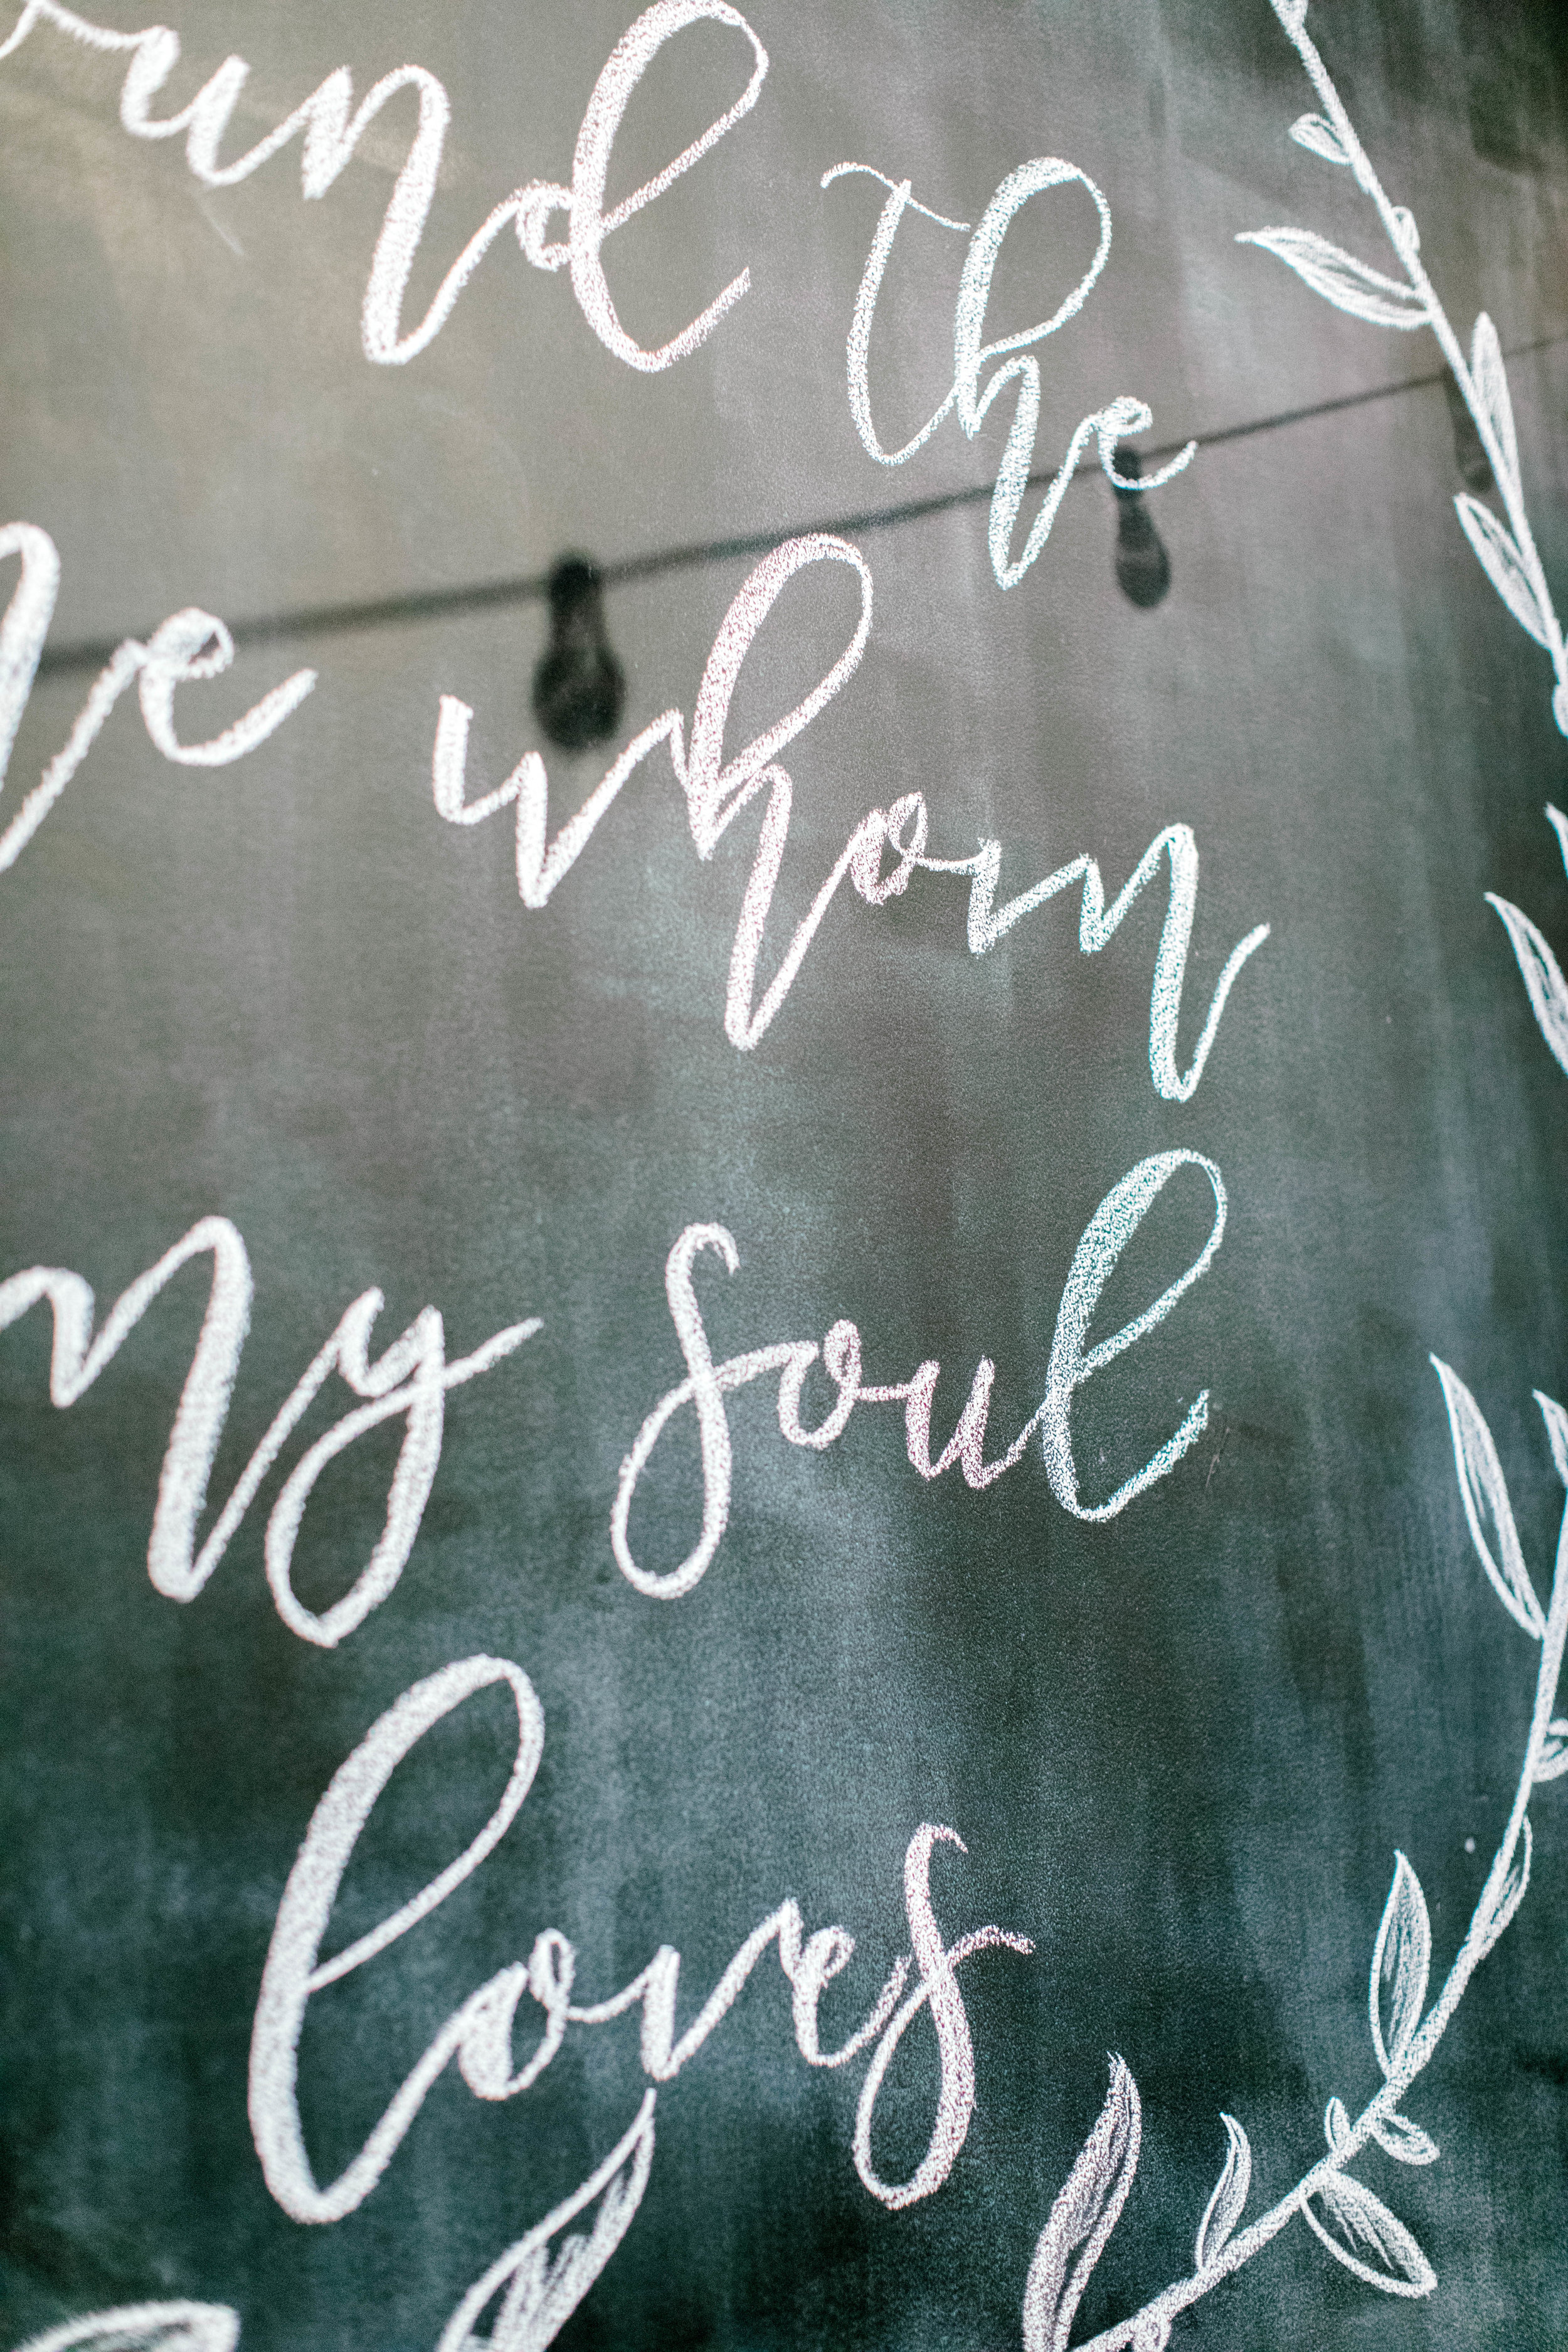 ound the
ne whom
my soul
loves